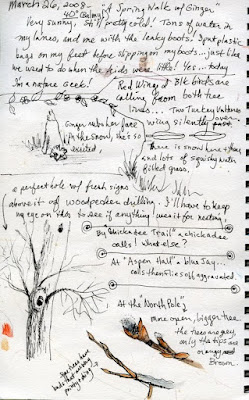 March 26, 2008 - "A Spring Walk w/ Ginger"
40° Balmy!
Very sunny, still pretty cold! Tons of water in
my lanes, and me with the leaky boots! I put plastic
bags on my feet before slipping on my boots... just like
we used to do when the kids were little! Yes... today
I'm a nature Geek!
Red Winged Blk birds are
calling from both tree
lines... Two Turkey Vultures
wing silently past over
Ginger rubs her face
in the snow, she's so
excited!
There is snow here & there
and lots of squishy water
filled grass.
a perfect hole w/ fresh signs
above it of woodpecker drilling. I'll have to keep
my eye on this to see if anything uses it for nesting!
By "Chickadee Trail" a chickadee
calls! What else?
At "Aspen Hall" a blue jay...
calls then flies off, aggravated.
At the "North Pole"
more open, bigger tree
the trees are grey,
only the tips are
orangey
brown